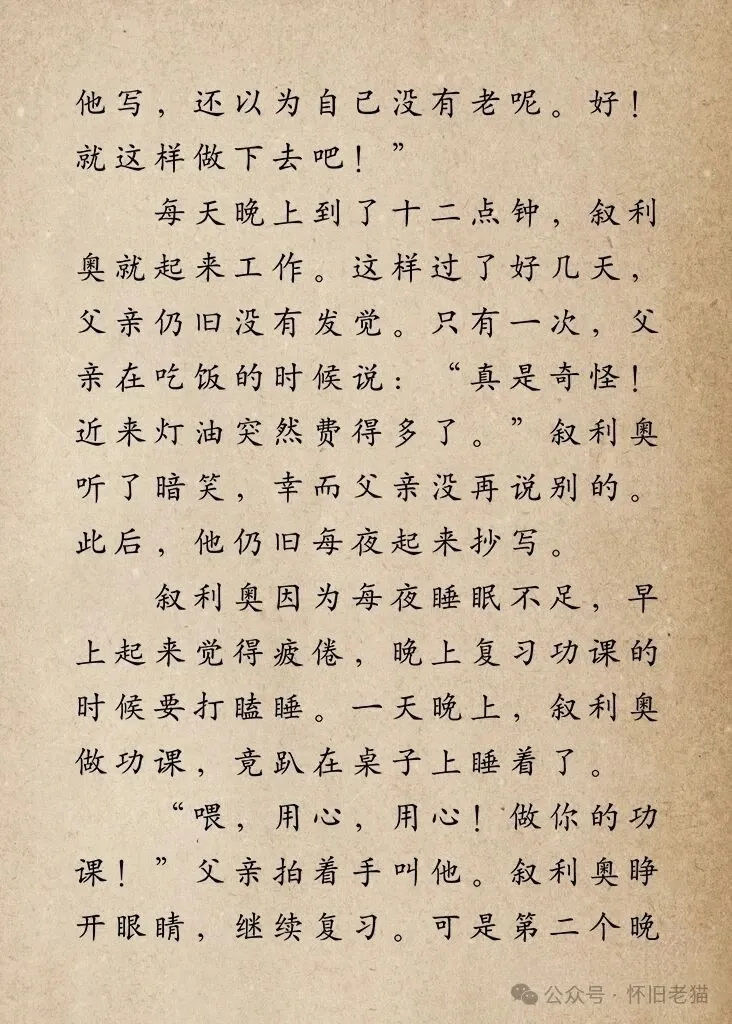 他写，还以为自己没有老呢。好！
就这样做下去吧！”
每天晚上到了十二点钟，叙利
奥就起来工作。这样过了好几天，
父亲仍旧没有发觉。只有一次，父
亲在吃饭的时候说：“真是奇怪！
近来灯油突然费得多了。”叙利奥
听了暗笑，幸而父亲没再说别的。
此后，他仍旧每夜起来抄写。
叙利奥因为每夜睡眠不足，早
上起来觉得疲倦，晚上复习功课的
时候要打瞌睡。一天晚上，叙利奥
做功课，竟趴在桌子上睡着了。
“喂，用心，用心！做你的功
课！”父亲拍着手叫他。叙利奥睁
开眼睛，继续复习。可是第二个晚
公众号·怀旧老猫